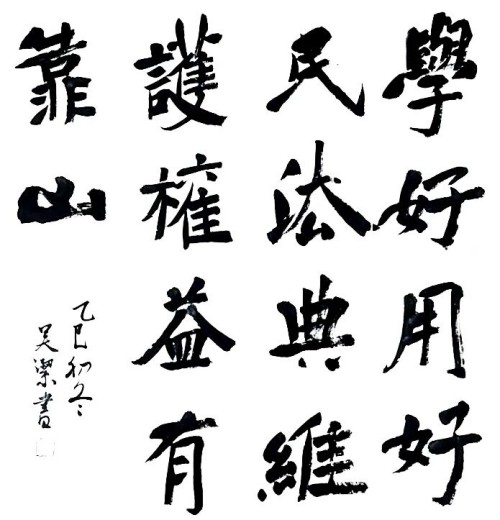 學好用好
民法典維
護權益有
靠山
乙巳初冬
吴潔書